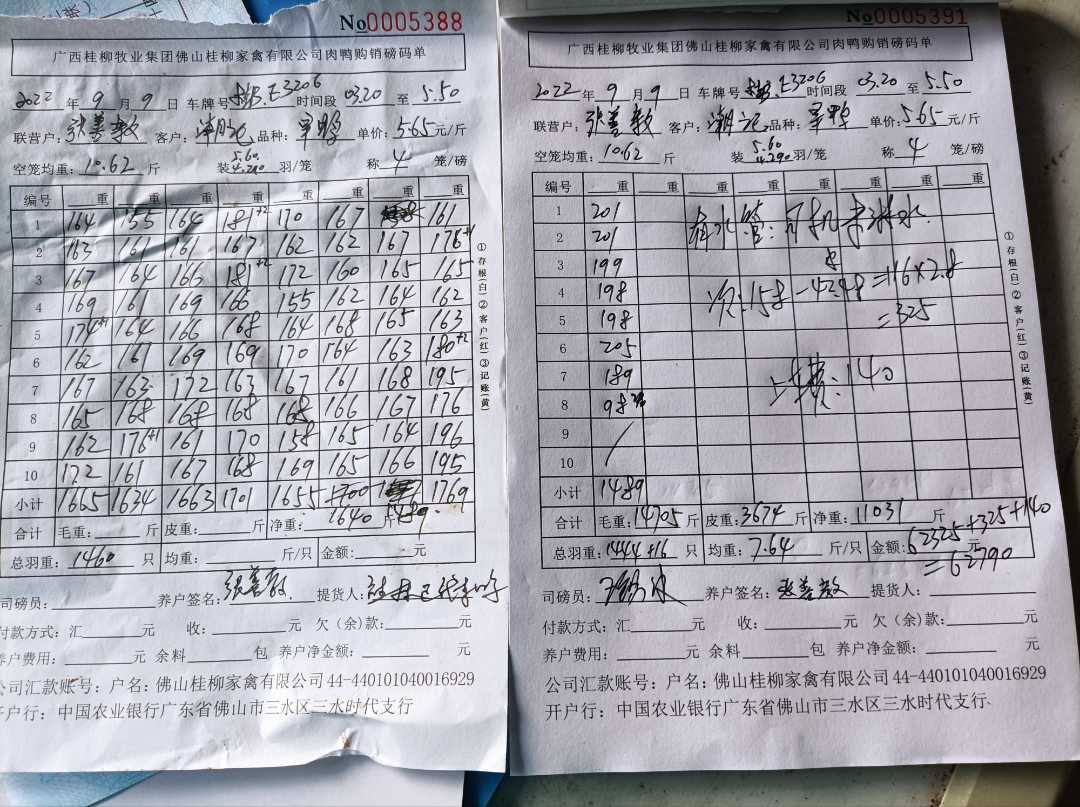 №0005388
广西桂柳牧业集团佛山桂柳家禽有限公司肉鸭购销磅码单
2022 年 9 月 9 日 车牌号 E3206 时间段 03.20 至 5.50
联营户: 张善敦 客户: 品种: 单价: 5.65 元/斤
空笼均重: 10.62 斤 装 5.60 4.290 羽/笼 称 4 笼/磅
编号 重 重 重 重 重 重 重 重
1 164 155 164 181+2 170 167 161
2 163 161 161 167 162 162 167 176+1
3 167 164 163 181+2 172 160 165 165
4 169 161 169 166 155 162 164 162
5 174+1 164 166 168 164 168 165 163
6 162 161 169 169 170 164 163 180+2
7 167 163 172 163 167 161 168 195
8 165 168 168 168 168 166 167 176
9 162 176+1 161 170 158 165 164 196
10 172 161 167 168 169 165 166 195
小计 1665 1634 1663 1701 1655 1700 1769
合计 毛重: 斤 皮重: 斤 净重: 1640 斤 1489
总羽重: 1460 只 均重: 斤/只 金额: 元
司磅员: 养户签名: 张善敦 提货人:
付款方式: 汇 元 收: 元 欠(余)款: 元
养户费用: 元 余料 包 养户净金额: 元
公司汇款账号: 户名: 佛山桂柳家禽有限公司 44-440101040016929
开户行: 中国农业银行广东省佛山市三水区三水时代支行
①存根(白)②客户(红)③记账(黄)
№0005391
广西桂柳牧业集团佛山桂柳家禽有限公司肉鸭购销磅码单
2022 年 9 月 9 日 车牌号 E3206 时间段 03.20 至 5.50
联营户: 张善敦 客户: 品种: 单价: 5.65 元/斤
空笼均重: 10.62 斤 装 5.60 4.290 羽/笼 称 4 笼/磅
编号 重 重 重 重 重 重 重 重
1 201
2 201
3 199
4 198
5 198
6 205
7 189
8 98
9
10
小计 1489
水管: 司机 淋水.
158-42.48=116×2.8
=325
费: 140
合计 毛重: 14705 斤 皮重: 3674 斤 净重: 11031 斤
总羽重: 1444+16 只 均重: 7.64 斤/只 金额: 62325+325+140 元
=62790
司磅员: 养户签名: 张善敦 提货人:
付款方式: 汇 元 收: 元 欠(余)款: 元
养户费用: 元 余料 包 养户净金额: 元
公司汇款账号: 户名: 佛山桂柳家禽有限公司 44-440101040016929
开户行: 中国农业银行广东省佛山市三水区三水时代支行
①存根(白)②客户(红)③记账(黄)